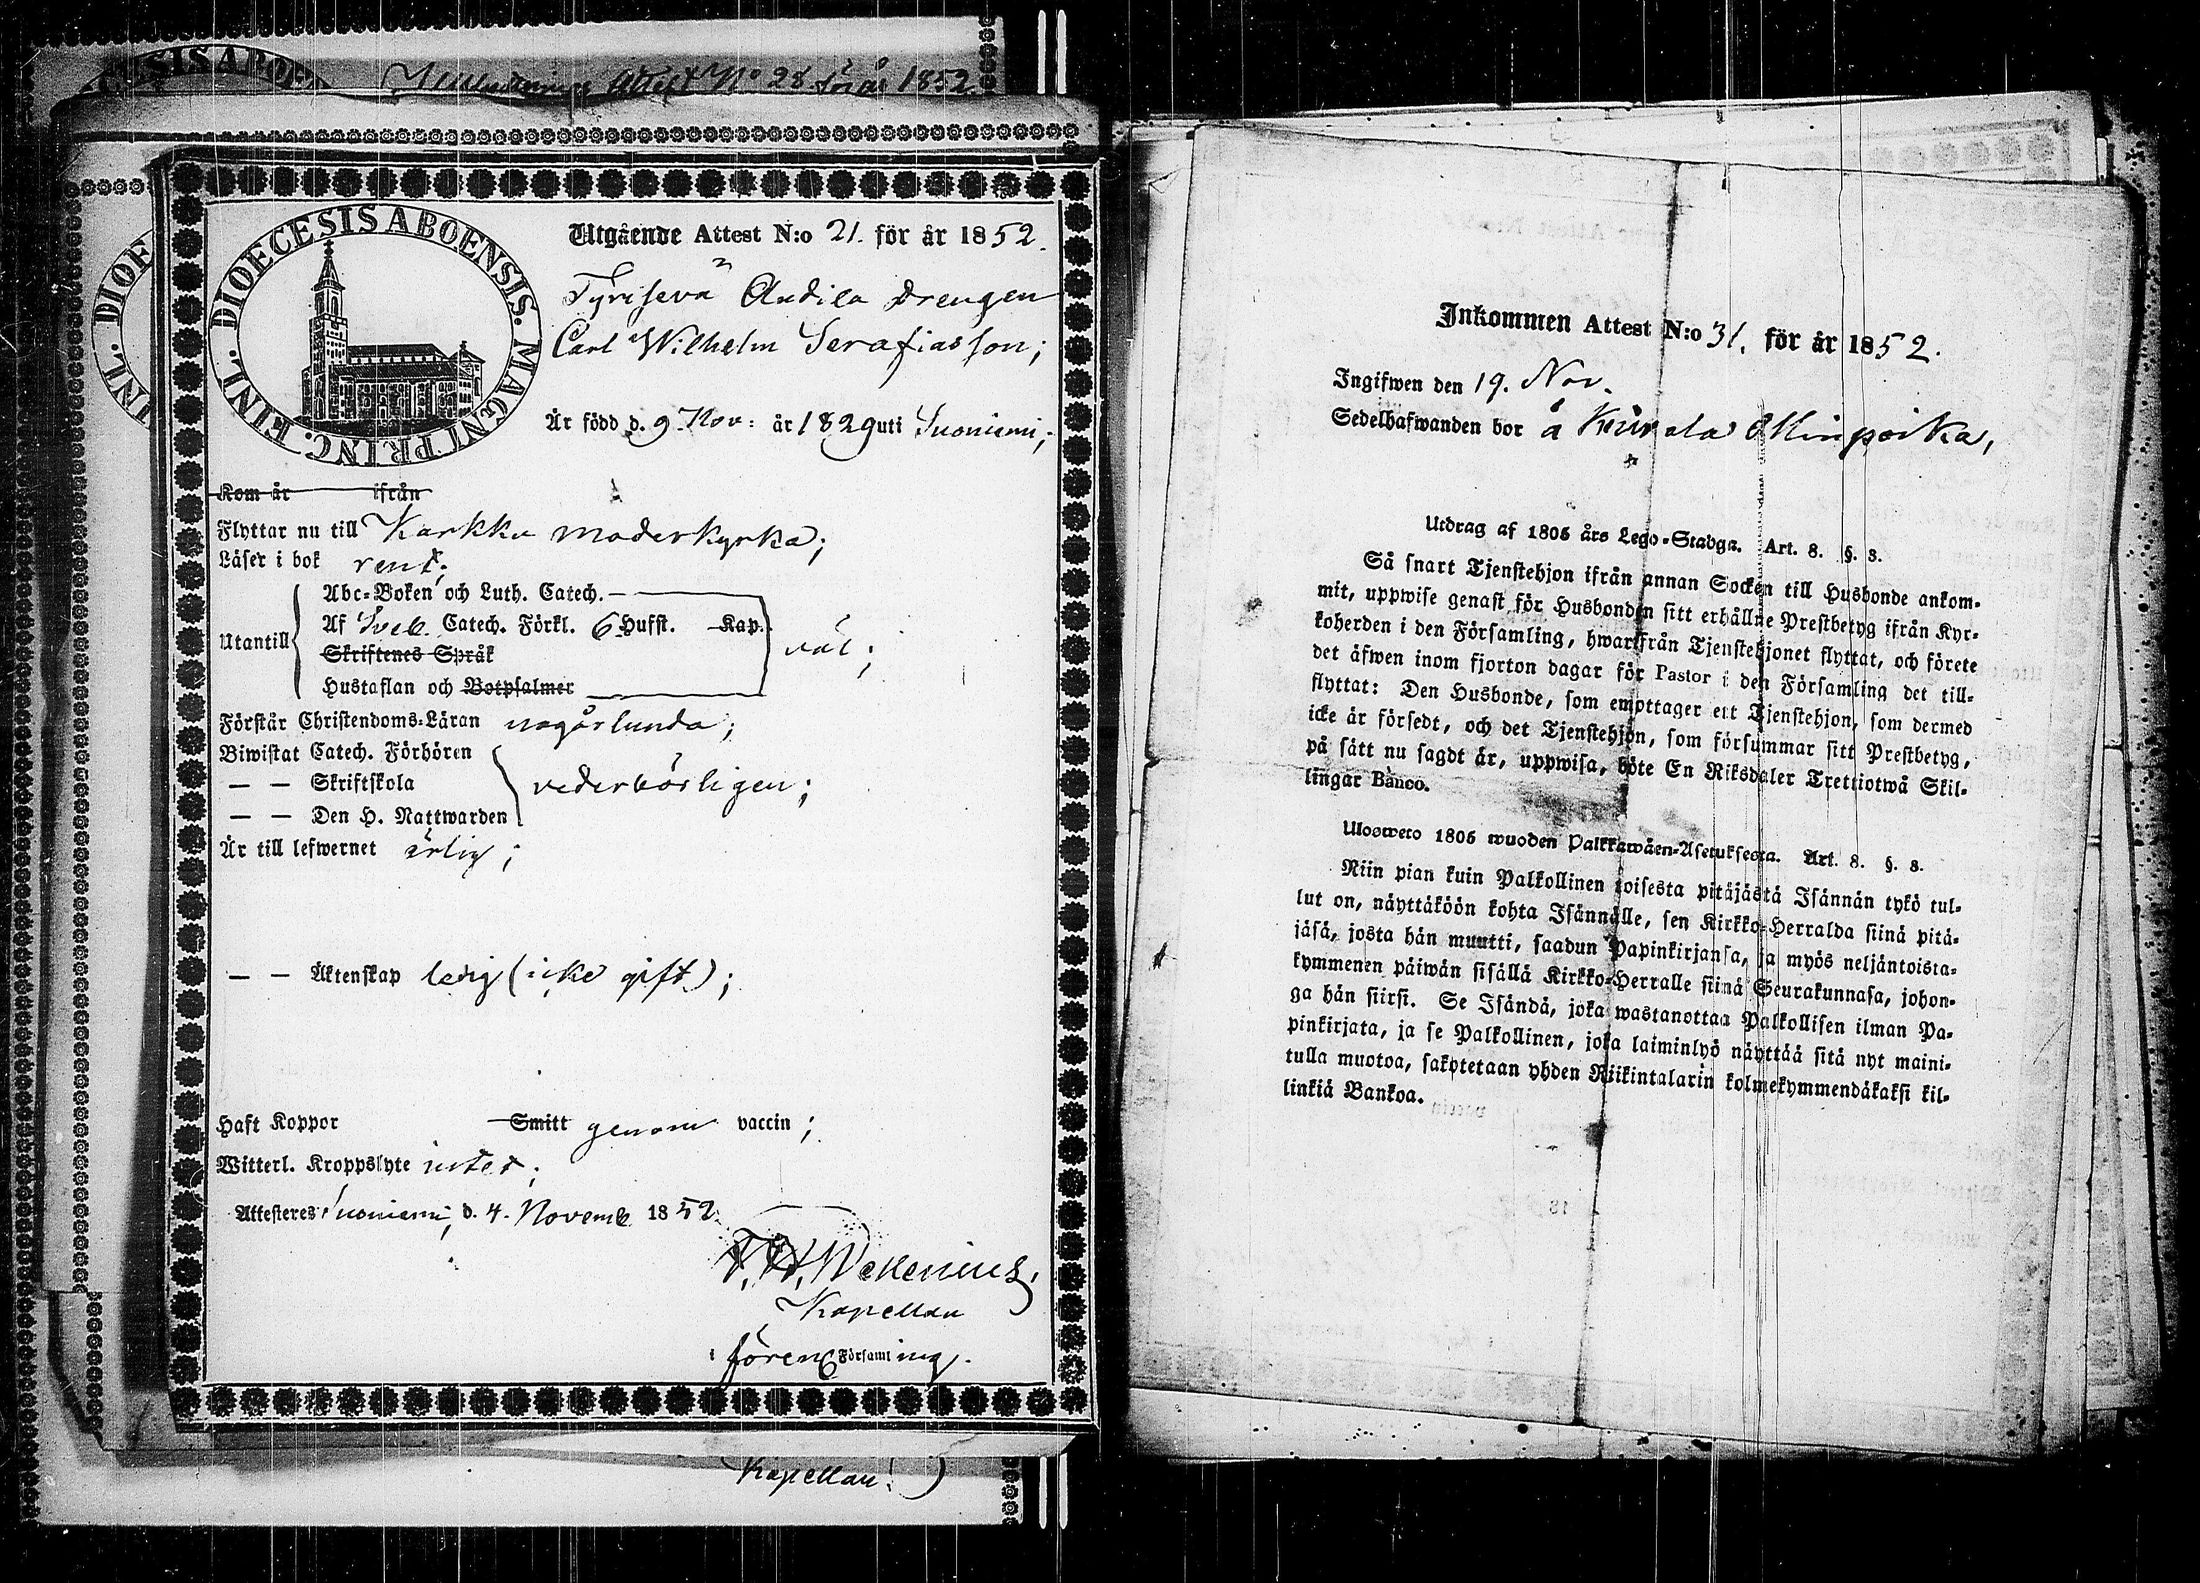 Attest No 28 för år 1852
DIOECESIS ABOENSIS. MAGNI PRINC. FINL.
Utgående Attest N:o 21. för år 1852.
Tyrisevä Andila Drengen
Carl Wilhelm Serafiasson;
Är född d. 9 Nov: år 1829 uti Suoniemi;
Kom år ifrån
Flyttar nu till Karkku moderkyrka;
Läser i bok rent;
Abc-Boken och Luth. Catech. —
Utantill
Af Sveb. Catech. Förkl. 6 Hufst. Kap.
Skriftenes Språk
väl;
Hustaflan och Botpsalmer
Förstår Christendoms-Läran någorlunda;
Biwistat Catech. Förhören
— — Skriftskola
vederbörligen;
— — Den H. Nattwarden
Är till lefwernet ärlig;
— — Äktenskap ledig (icke gift);
Haft Koppor Smitt genom vaccin;
Witterl. Kroppslyte intet;
Attesteres Suoniemi, d. 4. Novemb. 1852.
Wekenius,
Kapellan
i Församling.
Kapellan.
Inkommen Attest N:o 31. för år 1852.
Ingifwen den 19. Nov.
Sedelhafwanden bor å
Utdrag af 1805 års Lego-Stadga. Art. 8. §. 8.
Så snart Tjenstehjon ifrån annan Socken till Husbonde ankom-
mit, uppwise genast för Husbonden sitt erhållne Prestbetyg ifrån Kyr-
koherden i den Församling, hwarifrån Tjenstehjonet flyttat, och förete
det äfwen inom fjorton dagar för Pastor i den Församling det till-
flyttat: Den Husbonde, som emottager ett Tjenstehjon, som dermed
icke är försedt, och det Tjenstehjon, som försummar sitt Prestbetyg,
på sätt nu sagdt är, uppwisa, böte En Riksdaler Trettiotwå Skil-
lingar Banco.
Ulosweto 1805 wuoden Palkkawäen-Asetuksesta. Art. 8. §. 8.
Niin pian kuin Palkollinen toisesta pitäjästä Isännän tykö tul-
lut on, näyttäköön kohta Isännälle, sen Kirkko-Herralda siinä pitä-
jäsä, josta hän muutti, saadun Papinkirjansa, ja myös neljäntoista-
kymmenen päiwän sisällä Kirkko-Herralle siinä Seurakunnasa, johon-
ga hän siirsi. Se Isändä, joka wastanottaa Palkollisen ilman Pa-
pinkirjata, ja se Palkollinen, joka laiminlyö näyttää sitä nyt maini-
tulla muotoa, sakotetaan yhden Riikintalarin kolmekymmendäkaksi kil-
linkiä Bankoa.